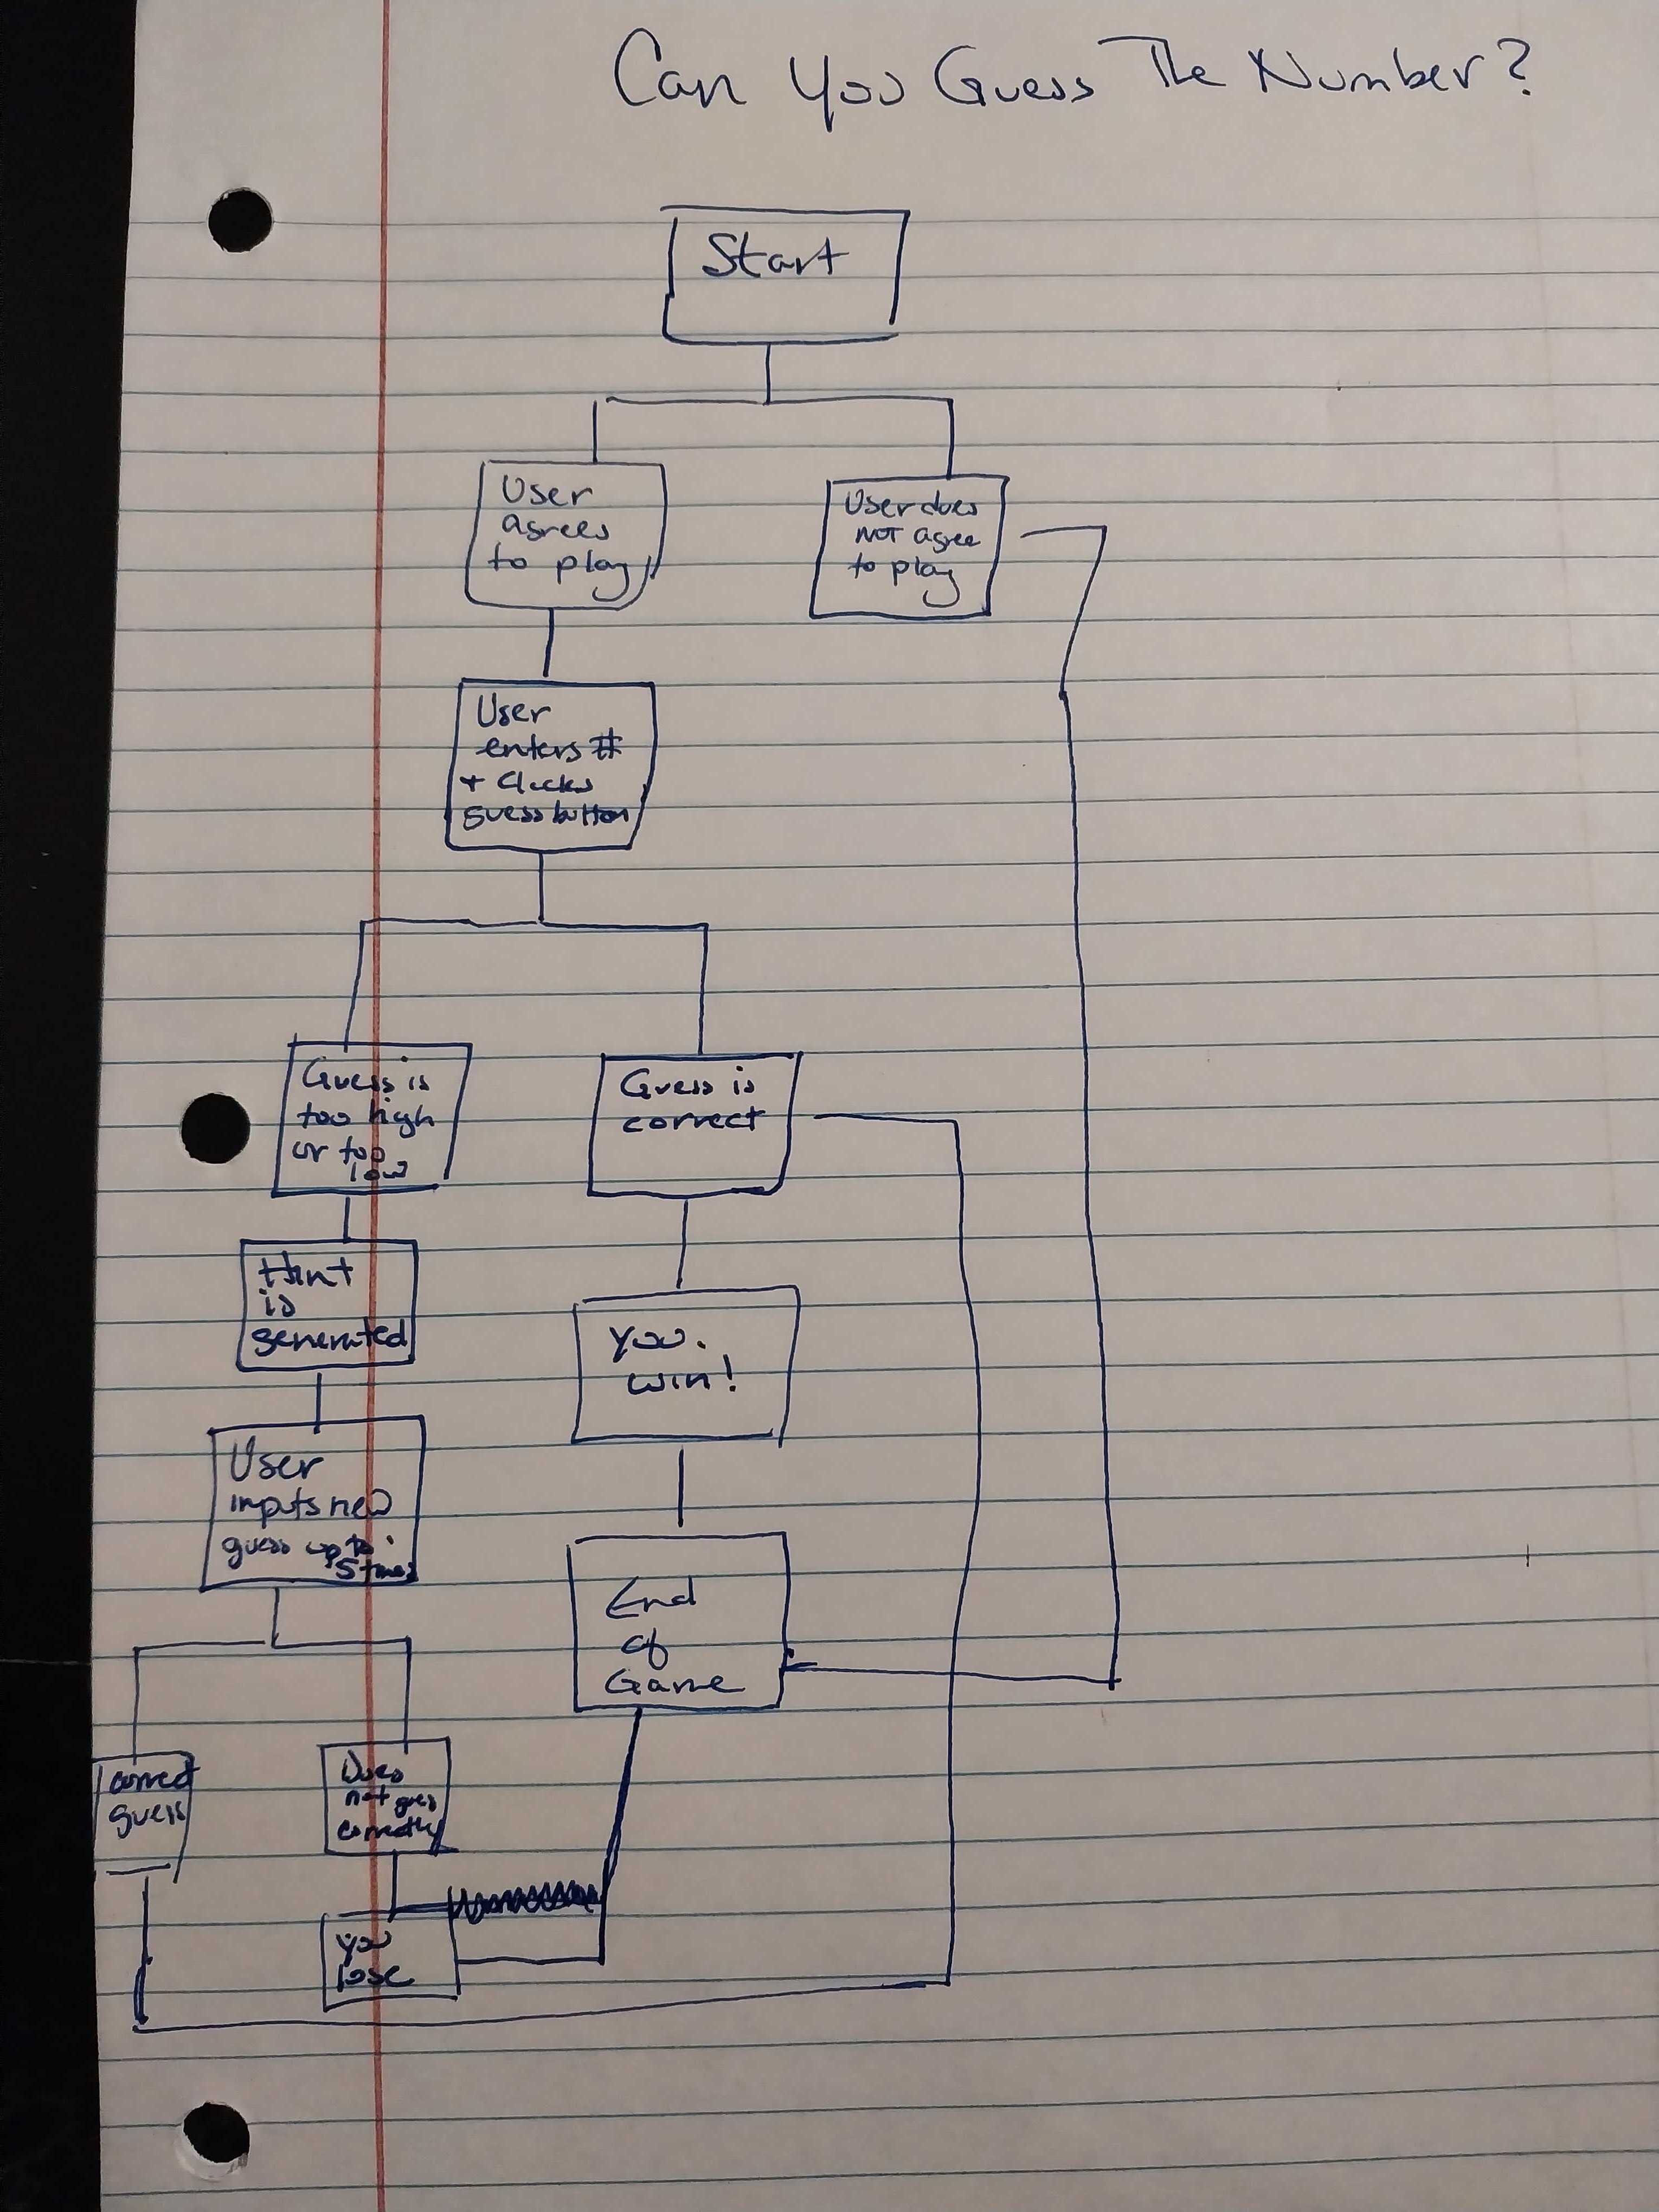 Can You Guess The Number?
Start
User
agrees
to play
User does
not agree
to play
User
enters #
+ Clicks
guess button
Guess is
too high
or too
low
Guess is
correct
Hint
is
generated
You
win!
User
inputs new
guess up to
5 times
End
of
Game
correct
guess
Does
not guess
correctly
you
lose